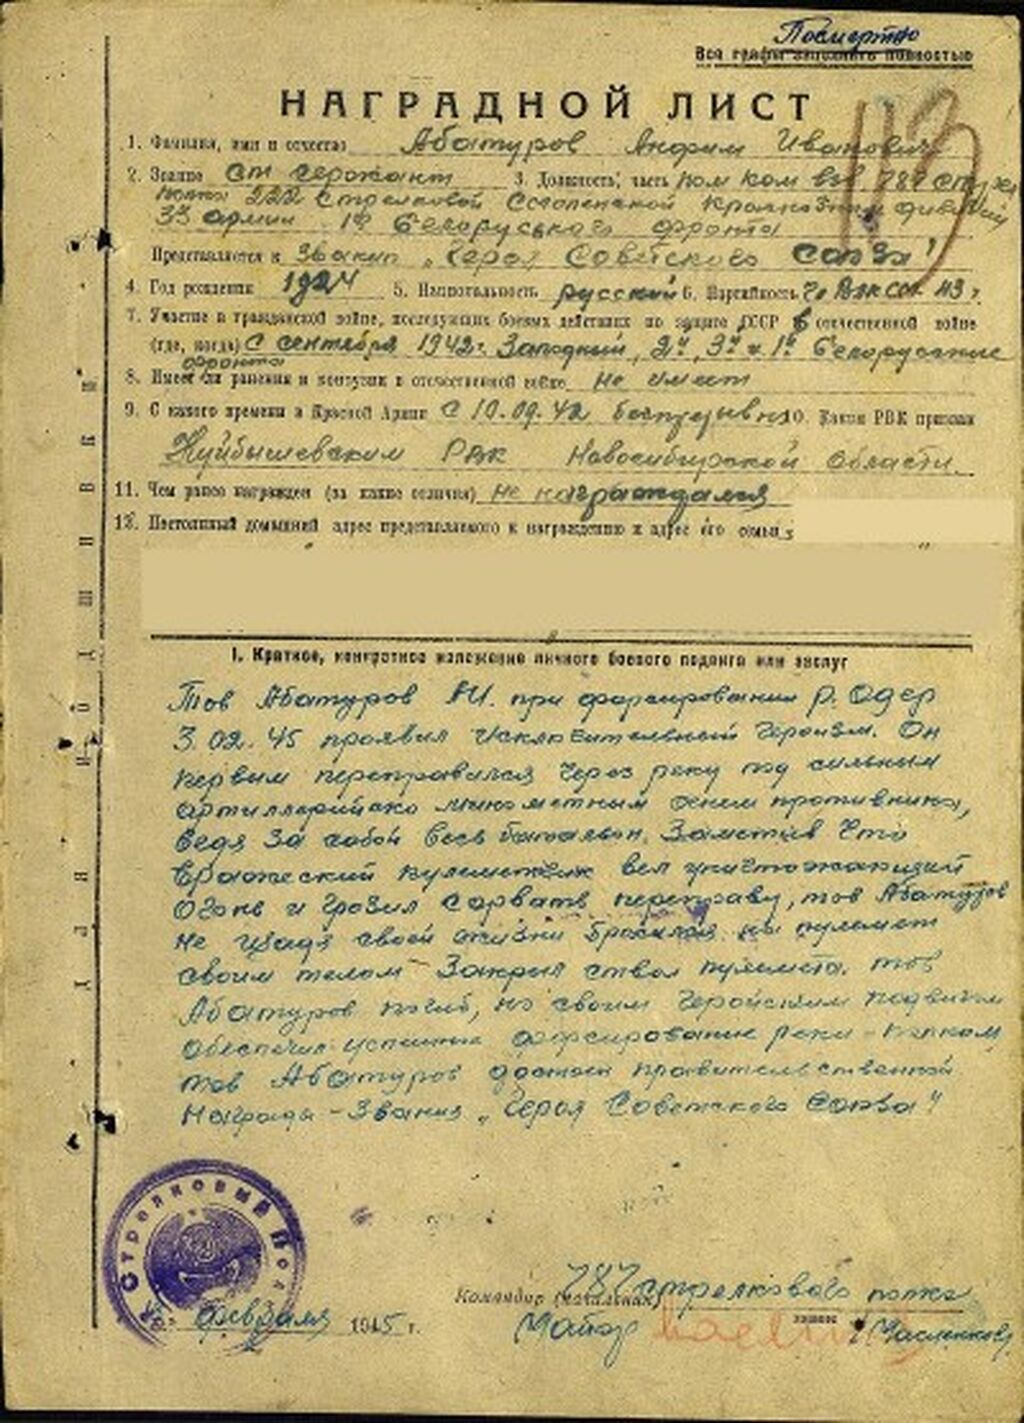 Посмертно
Все графы заполнять полностью
НАГРАДНОЙ ЛИСТ
1. Фамилия, имя и отчество Абатуров Иванович
2. Звание ст сержант 3. Должность, часть пом ком взв. 787 стр
222 стрелковой Смоленской Краснознам дивизии
33 армии 1го Белоруського фронта
Представляется к званию „Героя Советского Союза"
4. Год рождения 1924 5. Национальность русский 6. Партийность
7. Участие в гражданской войне, последующих боевых действиях по защите СССР в отечественной войне
(где, когда) С сентября 1942г. Западний, 2й, 3й и 1й Белорусские
фронта
8. Имеет ли ранения и контузии в отечественной войне не имеет
9. С какого времени в Красной Армии С 10.09.42 беспрерывно 10. Каким РВК призван
Куйбышевским РВК Новосибирской области.
11. Чем ранее награжден (за какие отличия) не награждался
12. Постоянный домашний адрес представляемого к награждению и адрес его семьи
I. Краткое, конкретное изложение личного боевого подвига или заслуг
Тов Абатуров АИ. при форсировании р. Одер
3.02.45 проявил исключительный героизм. Он
первым переправился через реку под сильным
артиллерийско минометным огнем противника,
ведя за собой весь батальон. Заметив что
вражеский пулеметчик вел уничтожающий
огонь и грозил сорвать переправу, тов Абатуров
не щадя своей жизни бросился на пулемет
своим телом закрыл ствол пулемета. тов
Абатуров погиб, но своим геройским подвигом
обеспечил успешное форсирование реки полком
тов Абатуров достоен правительственной
награды – звания „Героя Советского Союза"
Стрелковый Пол
Командир (начальник) 787 стрелкового полка
февраля 1945 г.
Майор звание /Масленков/
Линия для подшивки